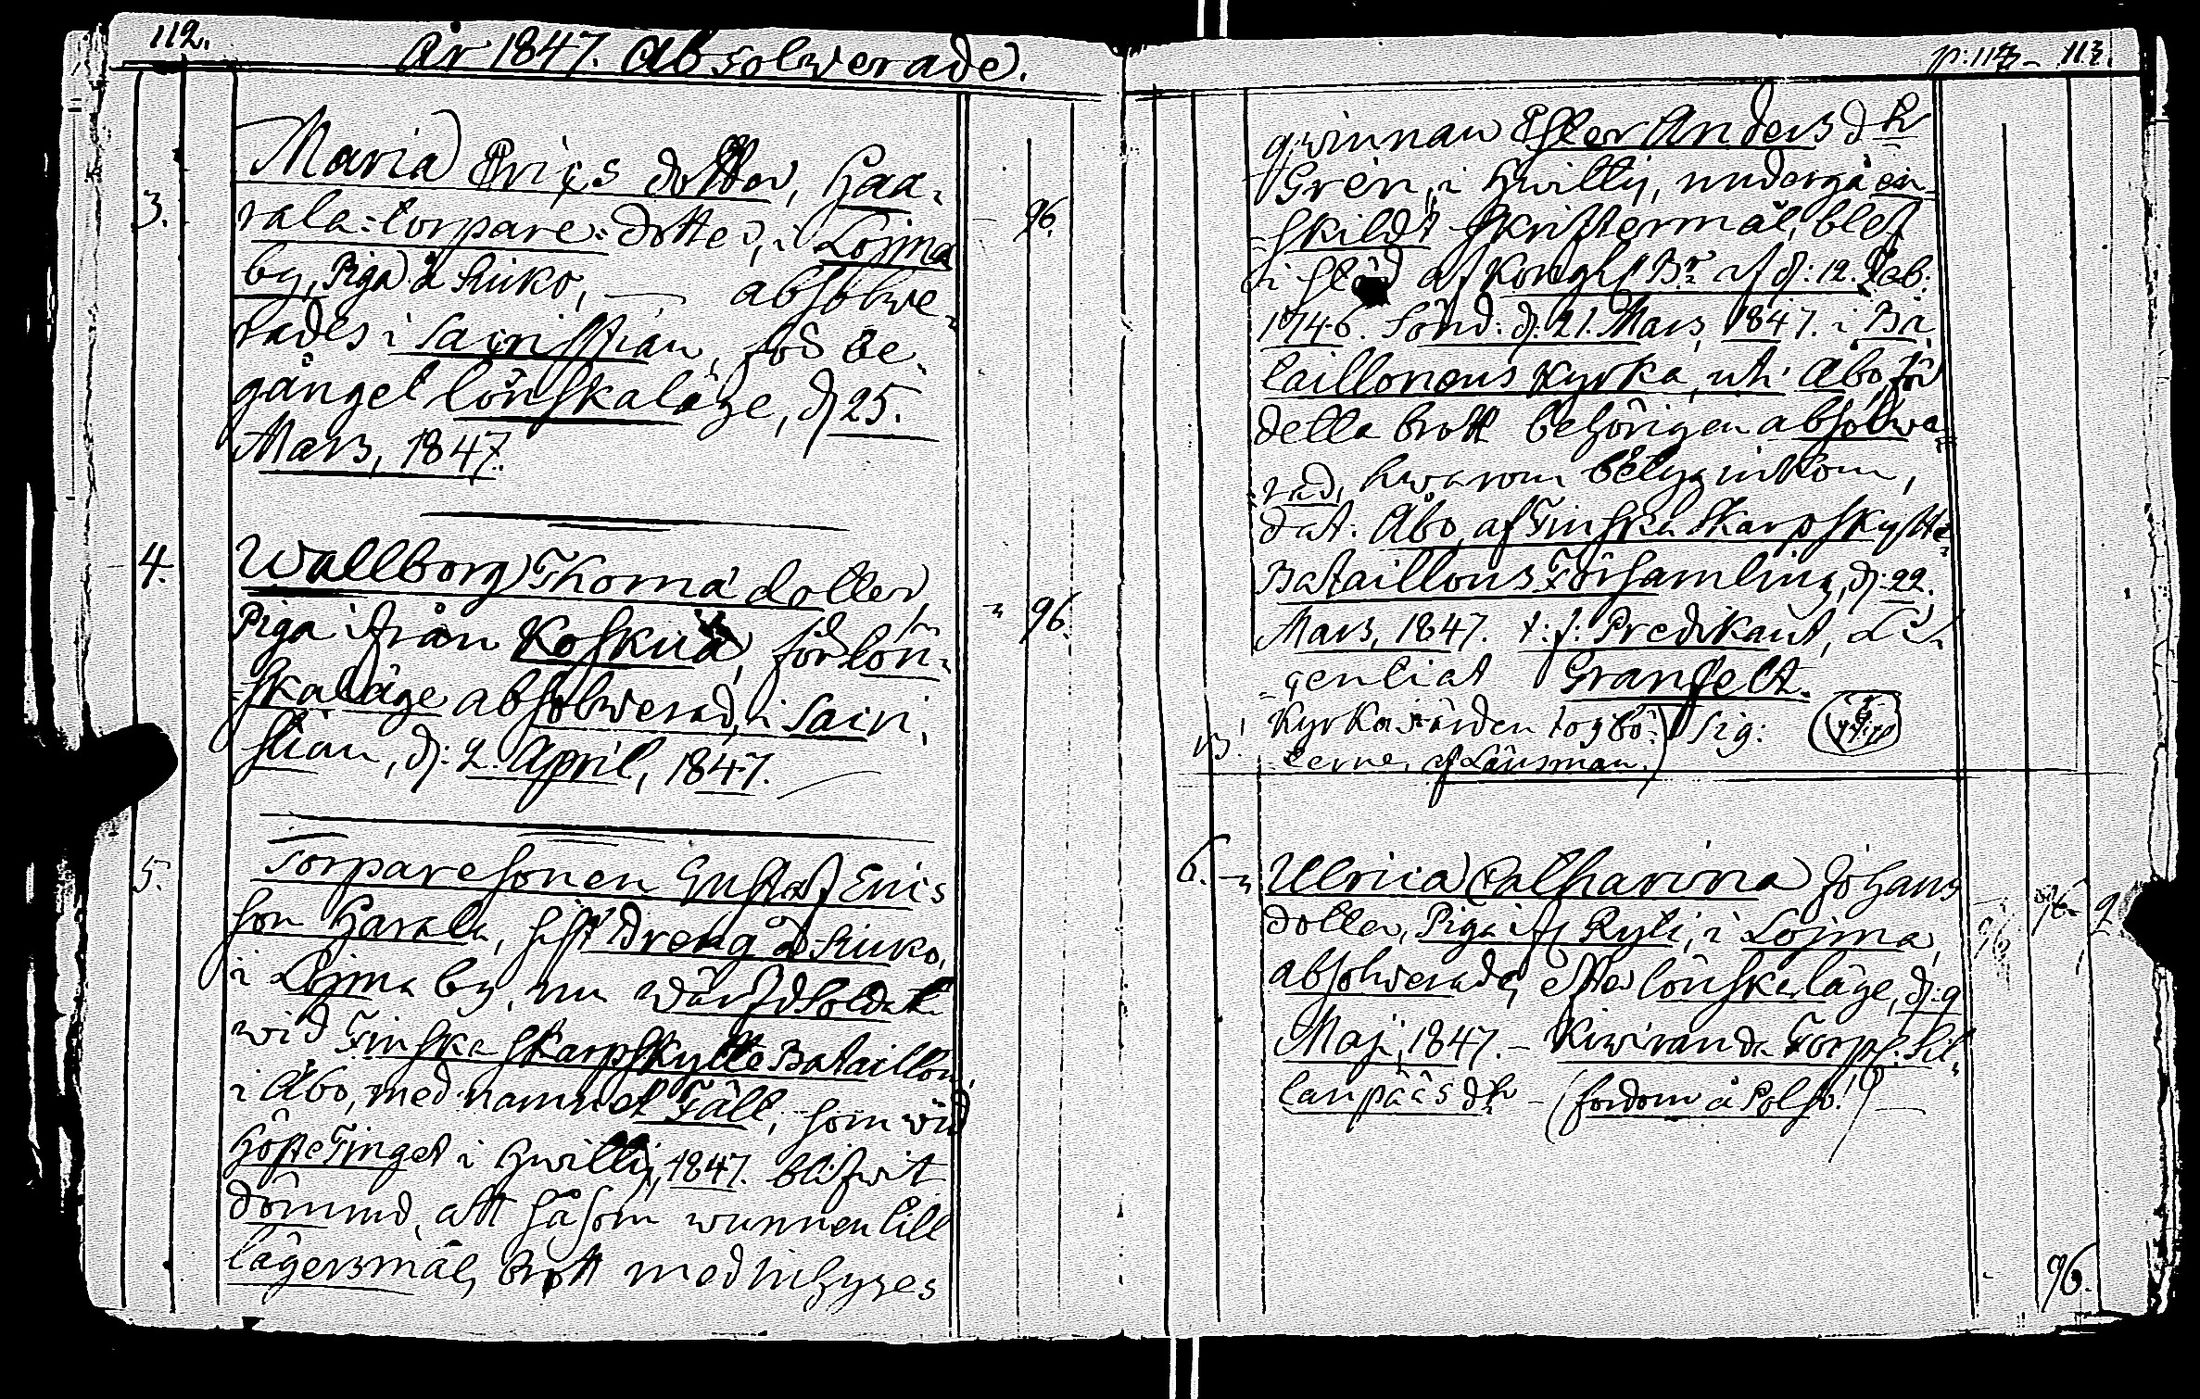 112.
År 1847. Absolwerade.
3.
Maria Erics dotter, Haa-
rala-torpare-dotter, i Lojma
96.
by, Piga å Siuko, — absolwe-
rades i Sacristian, för be-
gånget lönskaläge, d. 25.
Mars, 1847.
4.
Wallborg Thomä dotter,
Piga ifrån Koskua, för lön-
96.
skaläge absolwerad, i Sacri-
stian, d: 2. April, 1847.
5.
Torparesonen Gustaf Erics
son Harala, sist Dreng å Siuko,
i Lojma by, nu Wärfd Soldat
wid Finska Skarpskytte Bataillon,
i Åbo, med namnet Fält, som wid
HösteTinget i Hwittis, 1847. blifwit
dömmd, att såsom wunnen till
lägersmåls brott med inhyses
p: 113.
qwinnan Ester Anders dr
Grén, i Hwittis, undergå en-
skildt Skriftermål, blef
i stöd af Kongl. Br af d: 12. Feb:
1746. Sönd: d: 21. Mars, 1847. i Ba-
taillonens Kyrka, uti Åbo, för
detta brott behörigen absolwe-
rad, hwarom betyg inkom,
dat: Åbo, af Finska Skarpskytte
Bataillons Församling, d: 22.
Mars, 1847. t: f: Predikant, Li-
centiat Granfelt.
Kyrkowärden tog bö-
terne, af Länsman.) Sig:
6.
Ulrica Catharina Johans
dotter, Piga Kyli, i Lojma,
96.
absolwerades efter lönskaläge, d: 9
Maj, 1847. — Kiwiranda Torp:
lanpääs dr — (fordom å Polso!)
96.